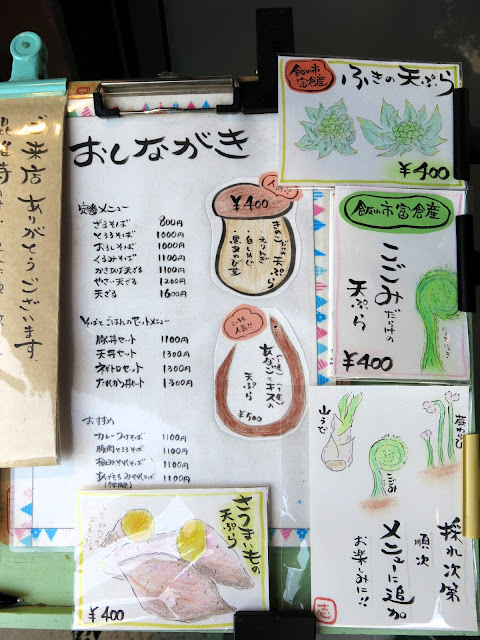 ご来店ありがとうございます
おしながき
定番メニュー
ざるそば 800円
とろろそば 1000円
おろしそば 1000円
くるみそば 1100円
かきあげ天ざる 1100円
やさい天ざる 1200円
天ざる 1600円
そばとごはんのセットメニュー
豚丼セット 1100円
天丼セット 1300円
ネギトロセット 1300円
たれかつ丼セット 1300円
おすすめ
カレーつけそば 1100円
豚肉とろろそば 1100円
梅みぞれそば 1100円
あげもちみぞれそば 1100円
人気
¥400
きのこだけの天ぷら
・えりんぎ
・白しめじ
・黒あわび茸
こちらも人気!!
(一匹) (一尾)
あなごとキスの
天ぷら
¥500
さつまいもの
天ぷら
¥400
飯山市富倉産
ふきの天ぷら
¥400
飯山市富倉産
こごみだけの
天ぷら
¥400
山うど
こごみ
採れ次第
順次
メニューに追加
お楽しみに!!